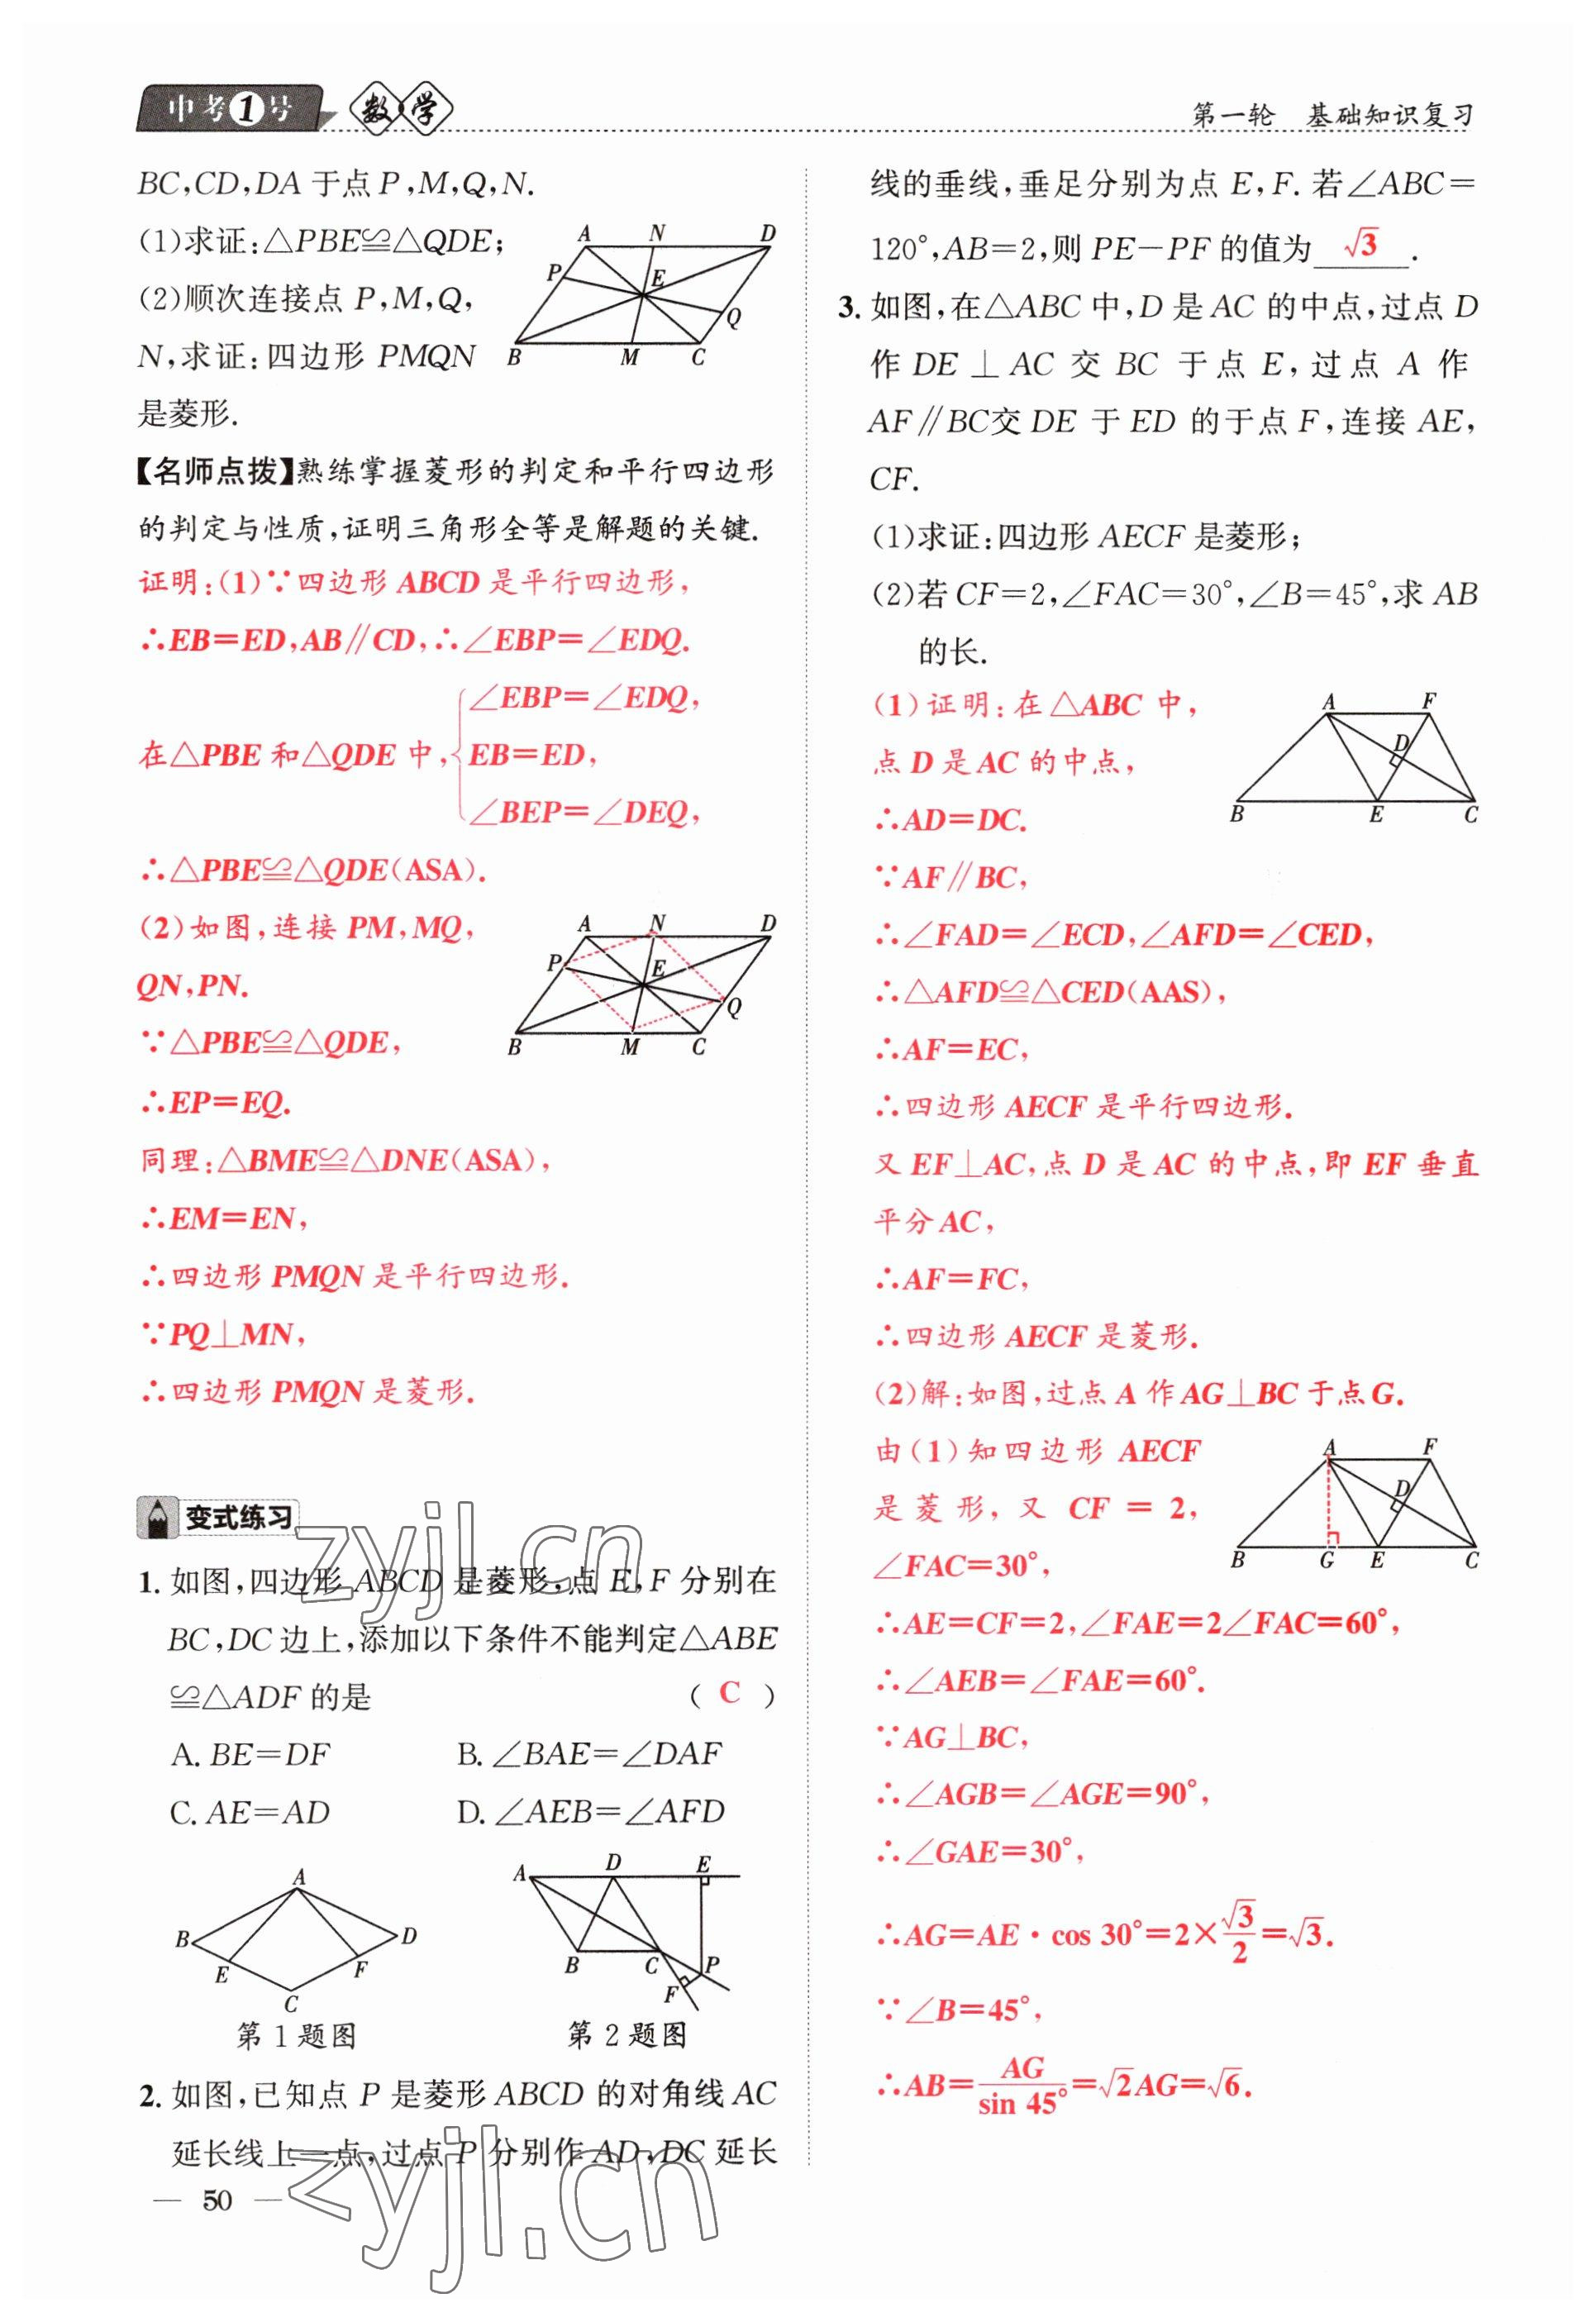 中考1号 数学
第一轮 基础知识复习
BC,CD,DA于点P,M,Q,N.
(1)求证:△PBE≌△QDE;
(2)顺次连接点P,M,Q,
N,求证:四边形PMQN
是菱形.
A N D
P E
Q
B M C
【名师点拨】熟练掌握菱形的判定和平行四边形
的判定与性质,证明三角形全等是解题的关键.
证明:(1)∵四边形ABCD是平行四边形,
∴EB=ED,AB∥CD,∴∠EBP=∠EDQ.
∠EBP=∠EDQ,
在△PBE和△QDE中,{EB=ED,
∠BEP=∠DEQ,
∴△PBE≌△QDE(ASA).
(2)如图,连接PM,MQ,
QN,PN.
∵△PBE≌△QDE,
∴EP=EQ.
A N D
P E
Q
B M C
同理:△BME≌△DNE(ASA),
∴EM=EN,
∴四边形PMQN是平行四边形.
∵PQ⊥MN,
∴四边形PMQN是菱形.
变式练习
1. 如图,四边形ABCD是菱形,点E,F分别在
BC,DC边上,添加以下条件不能判定△ABE
≌△ADF的是 ( C )
A. BE=DF B. ∠BAE=∠DAF
C. AE=AD D. ∠AEB=∠AFD
A
B D
E F
C
第1题图
A D E
B C P
F
第2题图
2. 如图,已知点P是菱形ABCD的对角线AC
延长线上一点,过点P分别作AD,DC延长
— 50 —
线的垂线,垂足分别为点E,F.若∠ABC=
120°,AB=2,则PE-PF的值为 √3 .
3. 如图,在△ABC中,D是AC的中点,过点D
作DE⊥AC交BC于点E,过点A作
AF∥BC交DE于ED的于点F,连接AE,
CF.
(1)求证:四边形AECF是菱形;
(2)若CF=2,∠FAC=30°,∠B=45°,求AB
的长.
(1)证明:在△ABC中,
点D是AC的中点,
∴AD=DC.
∵AF∥BC,
A F
D
B E C
∴∠FAD=∠ECD,∠AFD=∠CED,
∴△AFD≌△CED(AAS),
∴AF=EC,
∴四边形AECF是平行四边形.
又EF⊥AC,点D是AC的中点,即EF垂直
平分AC,
∴AF=FC,
∴四边形AECF是菱形.
(2)解:如图,过点A作AG⊥BC于点G.
由(1)知四边形AECF
是菱形,又CF=2,
∠FAC=30°,
A F
D
B G E C
∴AE=CF=2,∠FAE=2∠FAC=60°,
∴∠AEB=∠FAE=60°.
∵AG⊥BC,
∴∠AGB=∠AGE=90°,
∴∠GAE=30°,
∴AG=AE·cos 30°=2×√3/2=√3.
∵∠B=45°,
∴AB=AG/sin 45°=√2AG=√6.
zyjl.cn
zyjl.cn